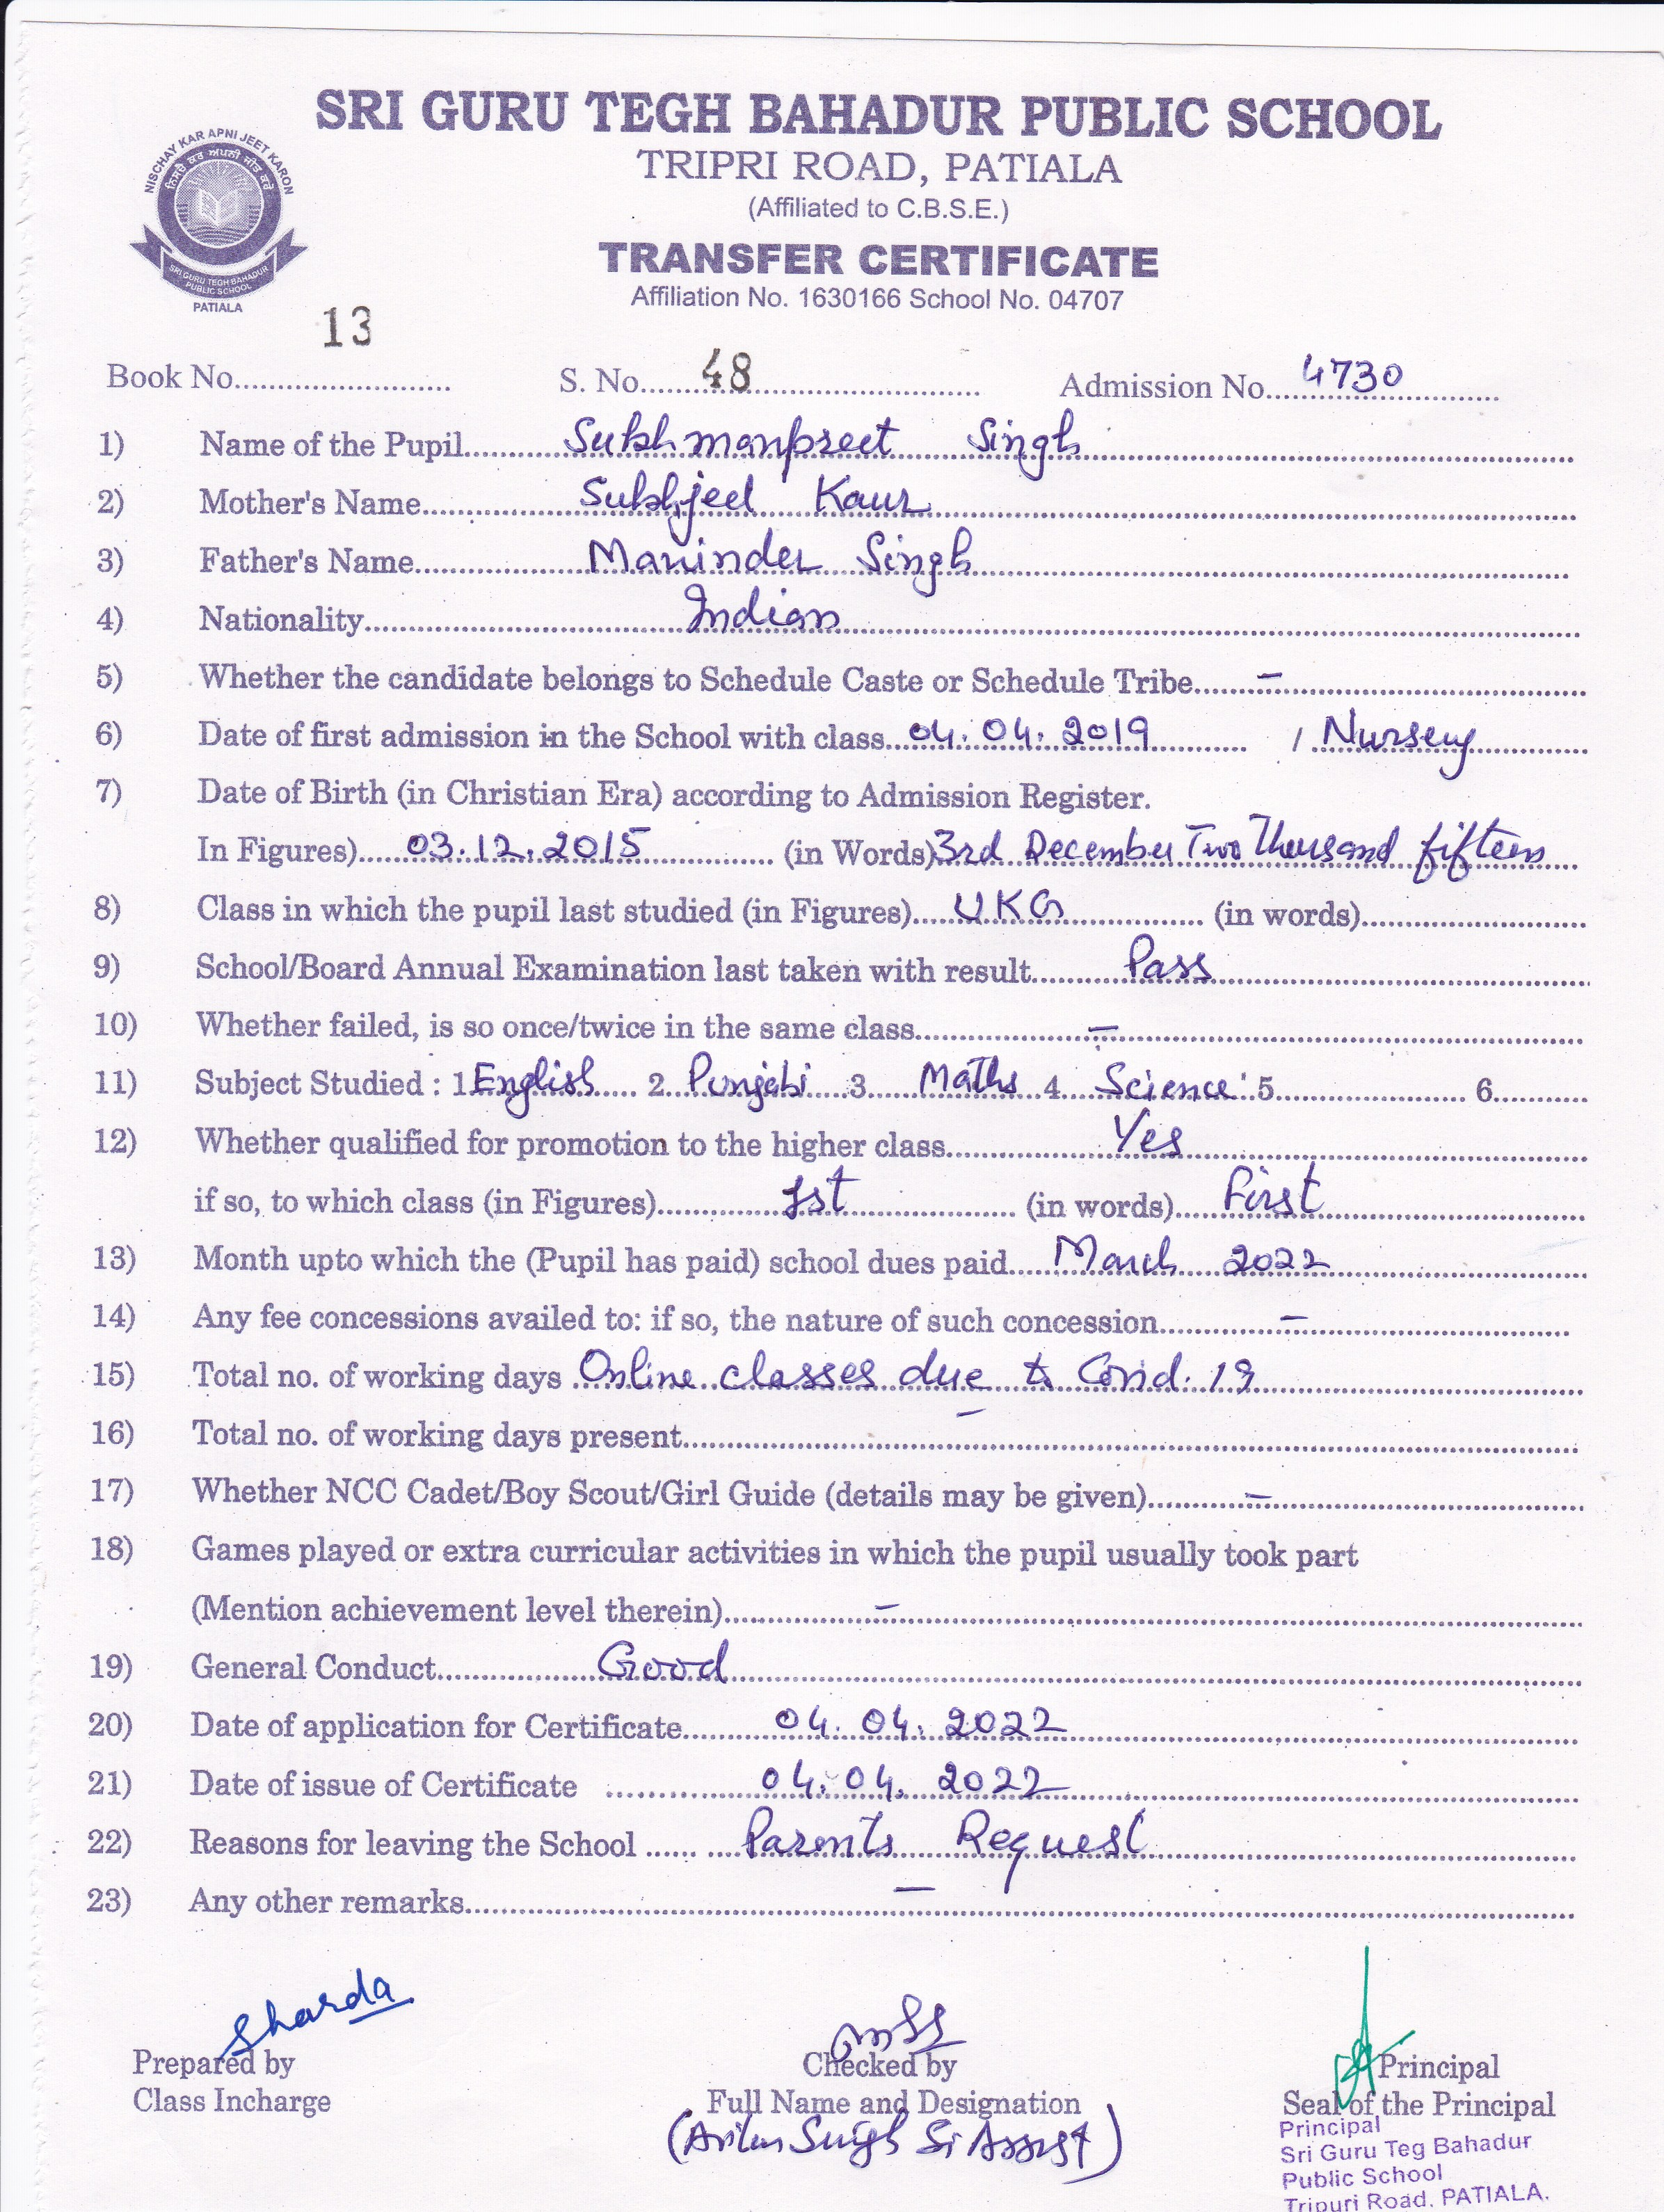 SRI GURU TEGH BAHADUR PUBLIC SCHOOL
TRIPRI ROAD, PATIALA
(Affiliated to C.B.S.E.)
TRANSFER CERTIFICATE
Affiliation No. 1630166 School No. 04707
NISCHAY KAR APNI JEET KARON
ਨਿਸਚੈ ਕਰ ਅਪਨੀ ਜੀਤ ਕਰੋਂ
SRI GURU TEGH BAHADUR
PUBLIC SCHOOL
PATIALA
Book No. 13 S. No. 48 Admission No. 4730
1) Name of the Pupil Sukhmanpreet Singh
2) Mother's Name Sukhjeet Kaur
3) Father's Name Maninder Singh
4) Nationality Indian
5) Whether the candidate belongs to Schedule Caste or Schedule Tribe –
6) Date of first admission in the School with class 04.04.2019 / Nursery
7) Date of Birth (in Christian Era) according to Admission Register.
In Figures) 03.12.2015 (in Words) 3rd December Two Thousand fifteen
8) Class in which the pupil last studied (in Figures) UKG (in words)
9) School/Board Annual Examination last taken with result Pass
10) Whether failed, is so once/twice in the same class –
11) Subject Studied : 1 English 2 Punjabi 3 Maths 4 Science 5 6
12) Whether qualified for promotion to the higher class Yes
if so, to which class (in Figures) 1st (in words) First
13) Month upto which the (Pupil has paid) school dues paid March 2022
14) Any fee concessions availed to: if so, the nature of such concession –
15) Total no. of working days Online classes due to Covid. 19
16) Total no. of working days present –
17) Whether NCC Cadet/Boy Scout/Girl Guide (details may be given) –
18) Games played or extra curricular activities in which the pupil usually took part
(Mention achievement level therein) –
19) General Conduct Good
20) Date of application for Certificate 04.04.2022
21) Date of issue of Certificate 04.04.2022
22) Reasons for leaving the School Parents Request
23) Any other remarks –
Sharda
Prepared by Checked by Principal
Class Incharge Full Name and Designation Seal of the Principal
Singh Sr Assist)
Principal
Sri Guru Teg Bahadur
Public School
Tripuri Road, PATIALA.